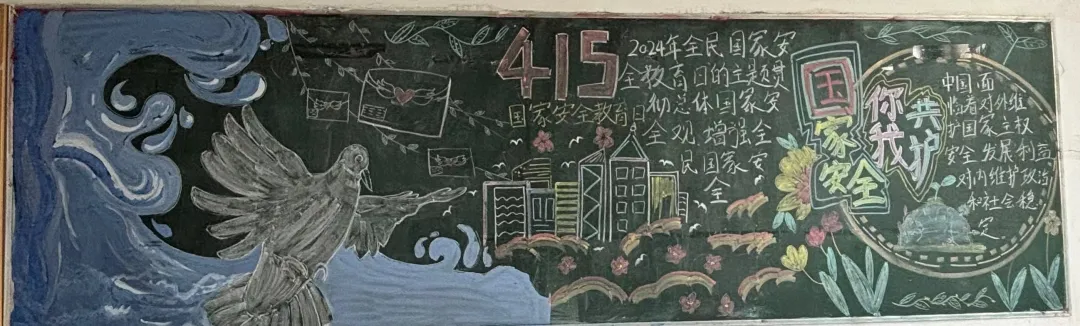 415
国家安全教育日
2024年全民国家安
全教育日的主题贯
彻总体国家安
全观,增强全
民国家安
全
国家安全
你我
共护
中国面
临着对外维
护国家主权
安全发展利益
对内维护政治
和社会稳
定